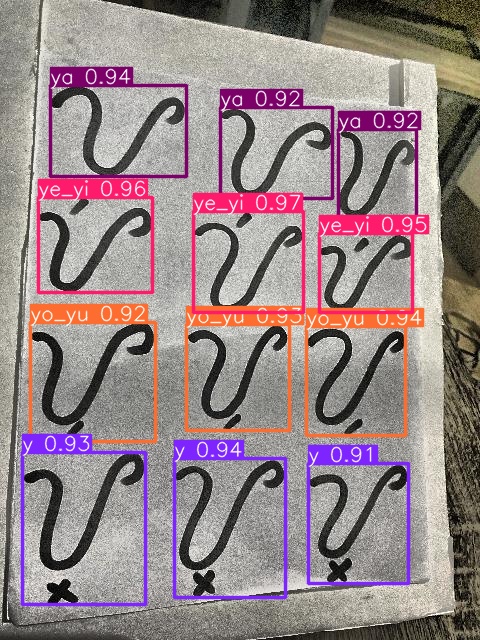 ya 0.94 ya 0.92 ya 0.92
ᜌ ᜌ ᜌ
ye_yi 0.96 ye_yi 0.97 ye_yi 0.95
ᜌᜒ ᜌᜒ ᜌᜒ
yo_yu 0.92 yo_yu 0.93 yo_yu 0.94
ᜌᜓ ᜌᜓ ᜌᜓ
y 0.93 y 0.94 y 0.91
ᜌ᜔ ᜌ᜔ ᜌ᜔